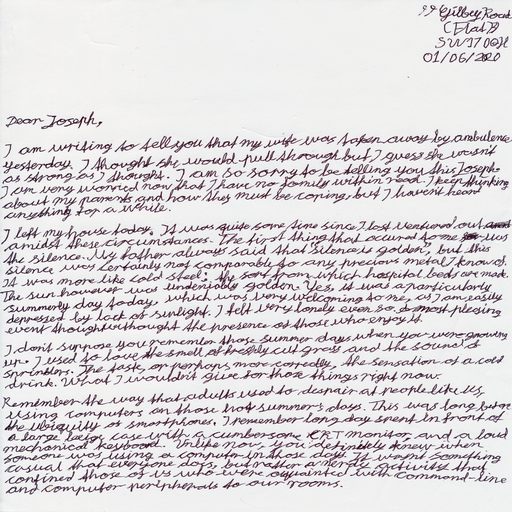 99 Gilbey Road
(Flat)
SW17 0QH
01/06/2020
Dear Joseph,
I am writing to tell you that my wife was taken away by ambulence
yesterday. I thought she would pull through but I guess she wasn't
as strong as I thought. I am so sorry to be telling you this Joseph.
I am very worried now that I have no family within reach. I keep thinking
about my parents and how they must be coping, but I haven't heard
anything for a while.
I left my house today. It was quite some time since I last ventured out
amidst these circumstances. The first thing that occurred to me was
the silence. My father always said that silence is golden, but this
silence was certainly not comparable to any precious metal I know of.
It was more like cold steel: the sort from which hospital beds are made.
The sun however was undeniably golden. Yes, it was a particularly
summery day today, which was very welcoming to me, as I am easily
depressed by lack of sunlight. I felt very lonely even so. A most plesing
event thought without the presence of those who enjoy it.
I don't suppose you remember those summer days when you were growing
up. I used to love the smell of freshly cut grass and the sound of
sprinklers. The task, or perhaps more correctly, the sensation of a cold
drink. What I wouldn't give for those things right now.
Remember the way that adults used to despair at people like us,
using computers on those hot summers days. This was long before
the ubiquity of smartphones. I remember long day spent in front of
a large beige case with a cumbersome CRT monitor, and a loud
mechanical keyboard. Unlike now, you definitely knew when
someone was using a computer in those days. It wasn't something
casual that everyone does, but rather a nerdy activity that
confined those of us who were acquainted with command-line
and computer peripherals to our rooms.